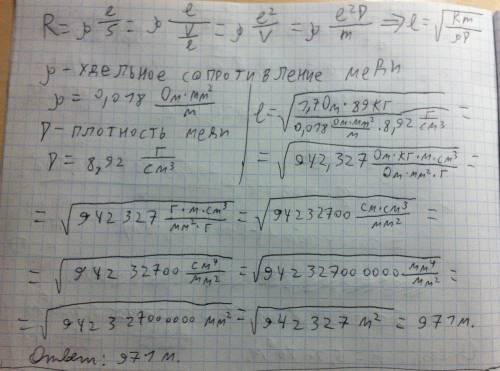 R = ρ l/S = ρ l/(V/l) = ρ l²/V = ρ l²D/m ⇒ l = √(Rm/ρD)
ρ - удельное сопротивление меди
ρ = 0,018 Ом·мм²/м
D - плотность меди
D = 8,92 г/см³
l = √(1,7 Ом · 89 кг / 0,018 Ом·мм²/м · 8,92 г/см³) =
= √(942,327 Ом·кг·м·см³/Ом·мм²·г) =
= √(942 327 г·м·см³/мм²·г) = √(94232700 см·см³/мм²) =
= √(942 32700 см⁴/мм²) = √(942327000000 мм⁴/мм²) =
= √(942327000000 мм²) = √(942 327 м²) = 971 м.
Ответ: 971 м.